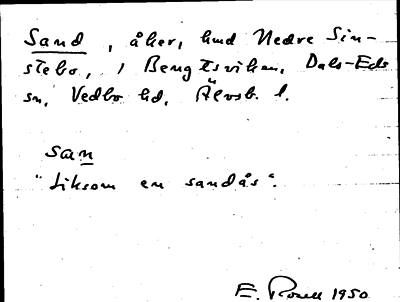 Sand, åker, hmd Nedre Sin-
stebo, i Bengtsviken, Dals-Eds
sn, Vedbo hd, Älvsb. l.
san
"liksom en sandås".
E. Rosell 1950